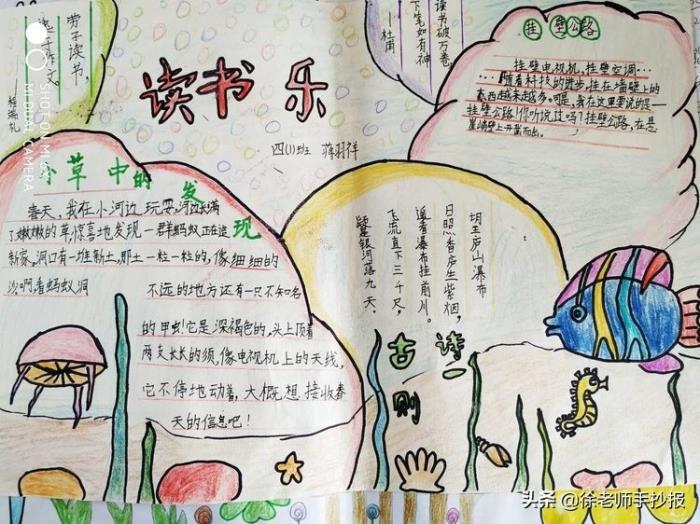 劳于读书，
逸于作文。
——程端礼
读书破万卷，
下笔如有神
——杜甫
读书乐
四(1)班 蒋羽祥
挂壁公路
挂壁电视机，挂壁空调……
……随着科技的进步，挂在墙壁上的
东西越来越多。可是，我在这里要说的是——
挂壁公路！你听说过吗？挂壁公路，在悬
崖峭壁上开凿而出。
小草中的发现
春天，我在小河边玩耍，河边长满
了嫩嫩的草，惊喜地发现一群蚂蚁正在造
新家，洞口有一堆新土，那土一粒一粒的，像细细的
沙啊，看蚂蚁洞
不远的地方还有一只不知名
的甲虫！它是深褐色的，头上顶着
两支长长的须，像电视机上的天线，
它不停地动着，大概想接收春
天的信息吧！
古诗一则
望庐山瀑布
日照香庐生紫烟，
遥看瀑布挂前川。
飞流直下三千尺，
疑是银河落九天。
SHOT ON MI 6X
MI DUAL CAMERA
头条 @徐老师手抄报